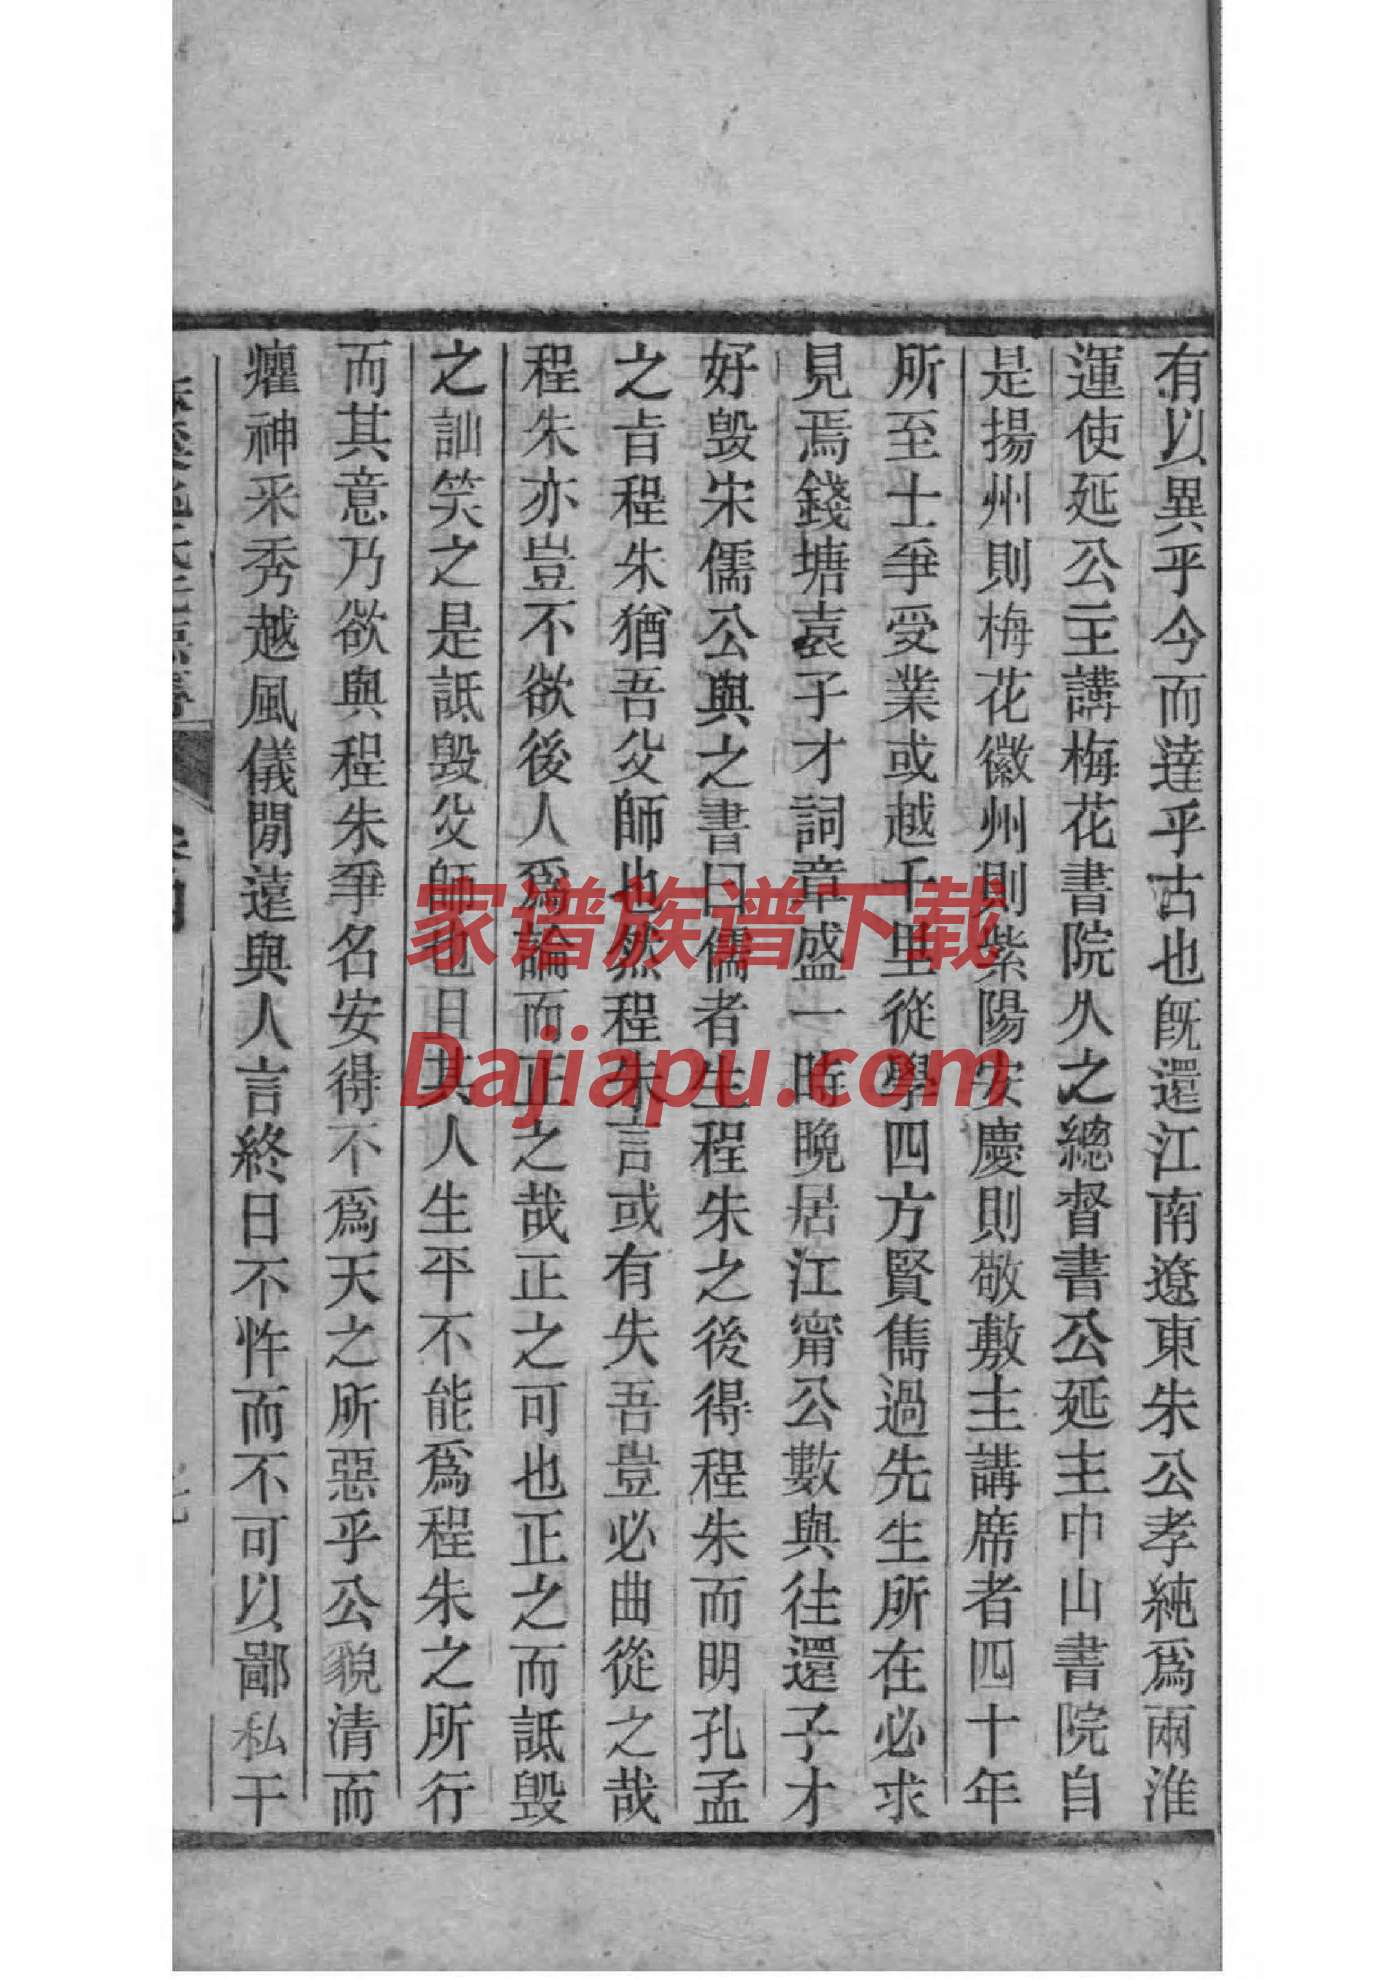 有以異乎今而達乎古也旣還江南遼東朱公孝純爲兩淮
運使延公主講梅花書院久之總督書公延主中山書院自
是揚州則梅花徽州則紫陽安慶則敬敷主講席者四十年
所至士爭受業或越千里從學四方賢儁過先生所在必求
見焉錢塘袁子才詞章盛一時晚居江甯公數與往還子才
好毀宋儒公與之書曰儒者生程朱之後得程朱而明孔孟
之旨程朱猶吾父師也然程朱言或有失吾豈必曲從之哉
程朱亦豈不欲後人爲論而正之哉正之可也正之而詆毀
之訕笑之是詆毀父師也且其人生平不能爲程朱之所行
而其意乃欲與程朱爭名安得不爲天之所惡乎公貌清而
癯神采秀越風儀閒遠與人言終日不忤而不可以鄙私干
家谱族谱下载
Dajiapu.com